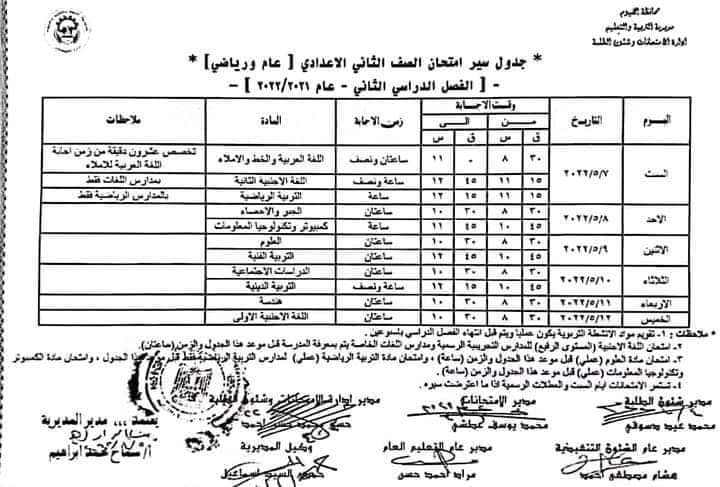 محافظة الفيوم
مديرية التربية والتعليم
ادارة الامتحانات وشئون الطلبة
* جدول سير امتحان الصف الثاني الاعدادي [ عام ورياضي ] *
- [ الفصل الدراسي الثاني - عام ٢٠٢٢/٢٠٢١ ] -
اليوم التاريخ وقت الاجابة زمن الاجابة المادة ملاحظات
من الى
ق س ق س
السبت ٢٠٢٢/٥/٧ ٣٠ ٨ - ١١ ساعتان ونصف اللغة العربية والخط والاملاء تخصص عشرون دقيقة من زمن اجابة اللغة العربية للاملاء
١٥ ١١ ٤٥ ١٢ ساعة ونصف اللغة الاجنبية الثانية بمدارس اللغات فقط
١٥ ١١ ١٥ ١٢ ساعة التربية الرياضية بالمدارس الرياضية فقط
الاحد ٢٠٢٢/٥/٨ ٣٠ ٨ ٣٠ ١٠ ساعتان الجبر والاحصاء
٤٥ ١٠ ٤٥ ١١ ساعة كمبيوتر وتكنولوجيا المعلومات
الاثنين ٢٠٢٢/٥/٩ ٣٠ ٨ ٣٠ ١٠ ساعتان العلوم
٤٥ ١٠ ٤٥ ١٢ ساعتان التربية الفنية
الثلاثاء ٢٠٢٢/٥/١٠ ٣٠ ٨ ٣٠ ١٠ ساعتان الدراسات الاجتماعية
٤٥ ١٠ ١٥ ١٢ ساعة ونصف التربية الدينية
الاربعاء ٢٠٢٢/٥/١١ ٣٠ ٨ ٣٠ ١٠ ساعتان هندسة
الخميس ٢٠٢٢/٥/١٢ ٣٠ ٨ ٣٠ ١٠ ساعتان اللغة الاجنبية الاولى
* ملاحظات : ١- تقويم مواد الانشطة التربوية يكون عمليا ويتم قبل انتهاء الفصل الدراسي باسبوعين .
٢- امتحان اللغة الاجنبية (المستوى الرفيع) للمدارس التجريبية الرسمية ومدارس اللغات الخاصة يتم بمعرفة المدرسة قبل موعد هذا الجدول والزمن (ساعتان).
٣- امتحان مادة العلوم (عملي) قبل موعد هذا الجدول والزمن (ساعة) ، وامتحان مادة التربية الرياضية (عملي) لمدارس التربية الرياضية فقط قبل موعد هذا الجدول ، وامتحان مادة الكمبيوتر
وتكنولوجيا المعلومات (عملي) قبل موعد هذا الجدول والزمن (ساعة).
٤- تستمر الامتحانات ايام السبت والعطلات الرسمية اذا ما اعترضت سيره .
مدير شئون الطلبة مدير الامتحانات مدير ادارة الامتحانات وشئون الطلبة يعتمد ,,, مدير المديرية
محمد عيد دسوقي محمد يوسف
مدير عام الشئون التنفيذية مدير عام التعليم العام وكيل المديرية
هشام مصطفى احمد مراد احمد حسن السيد اسماعيل